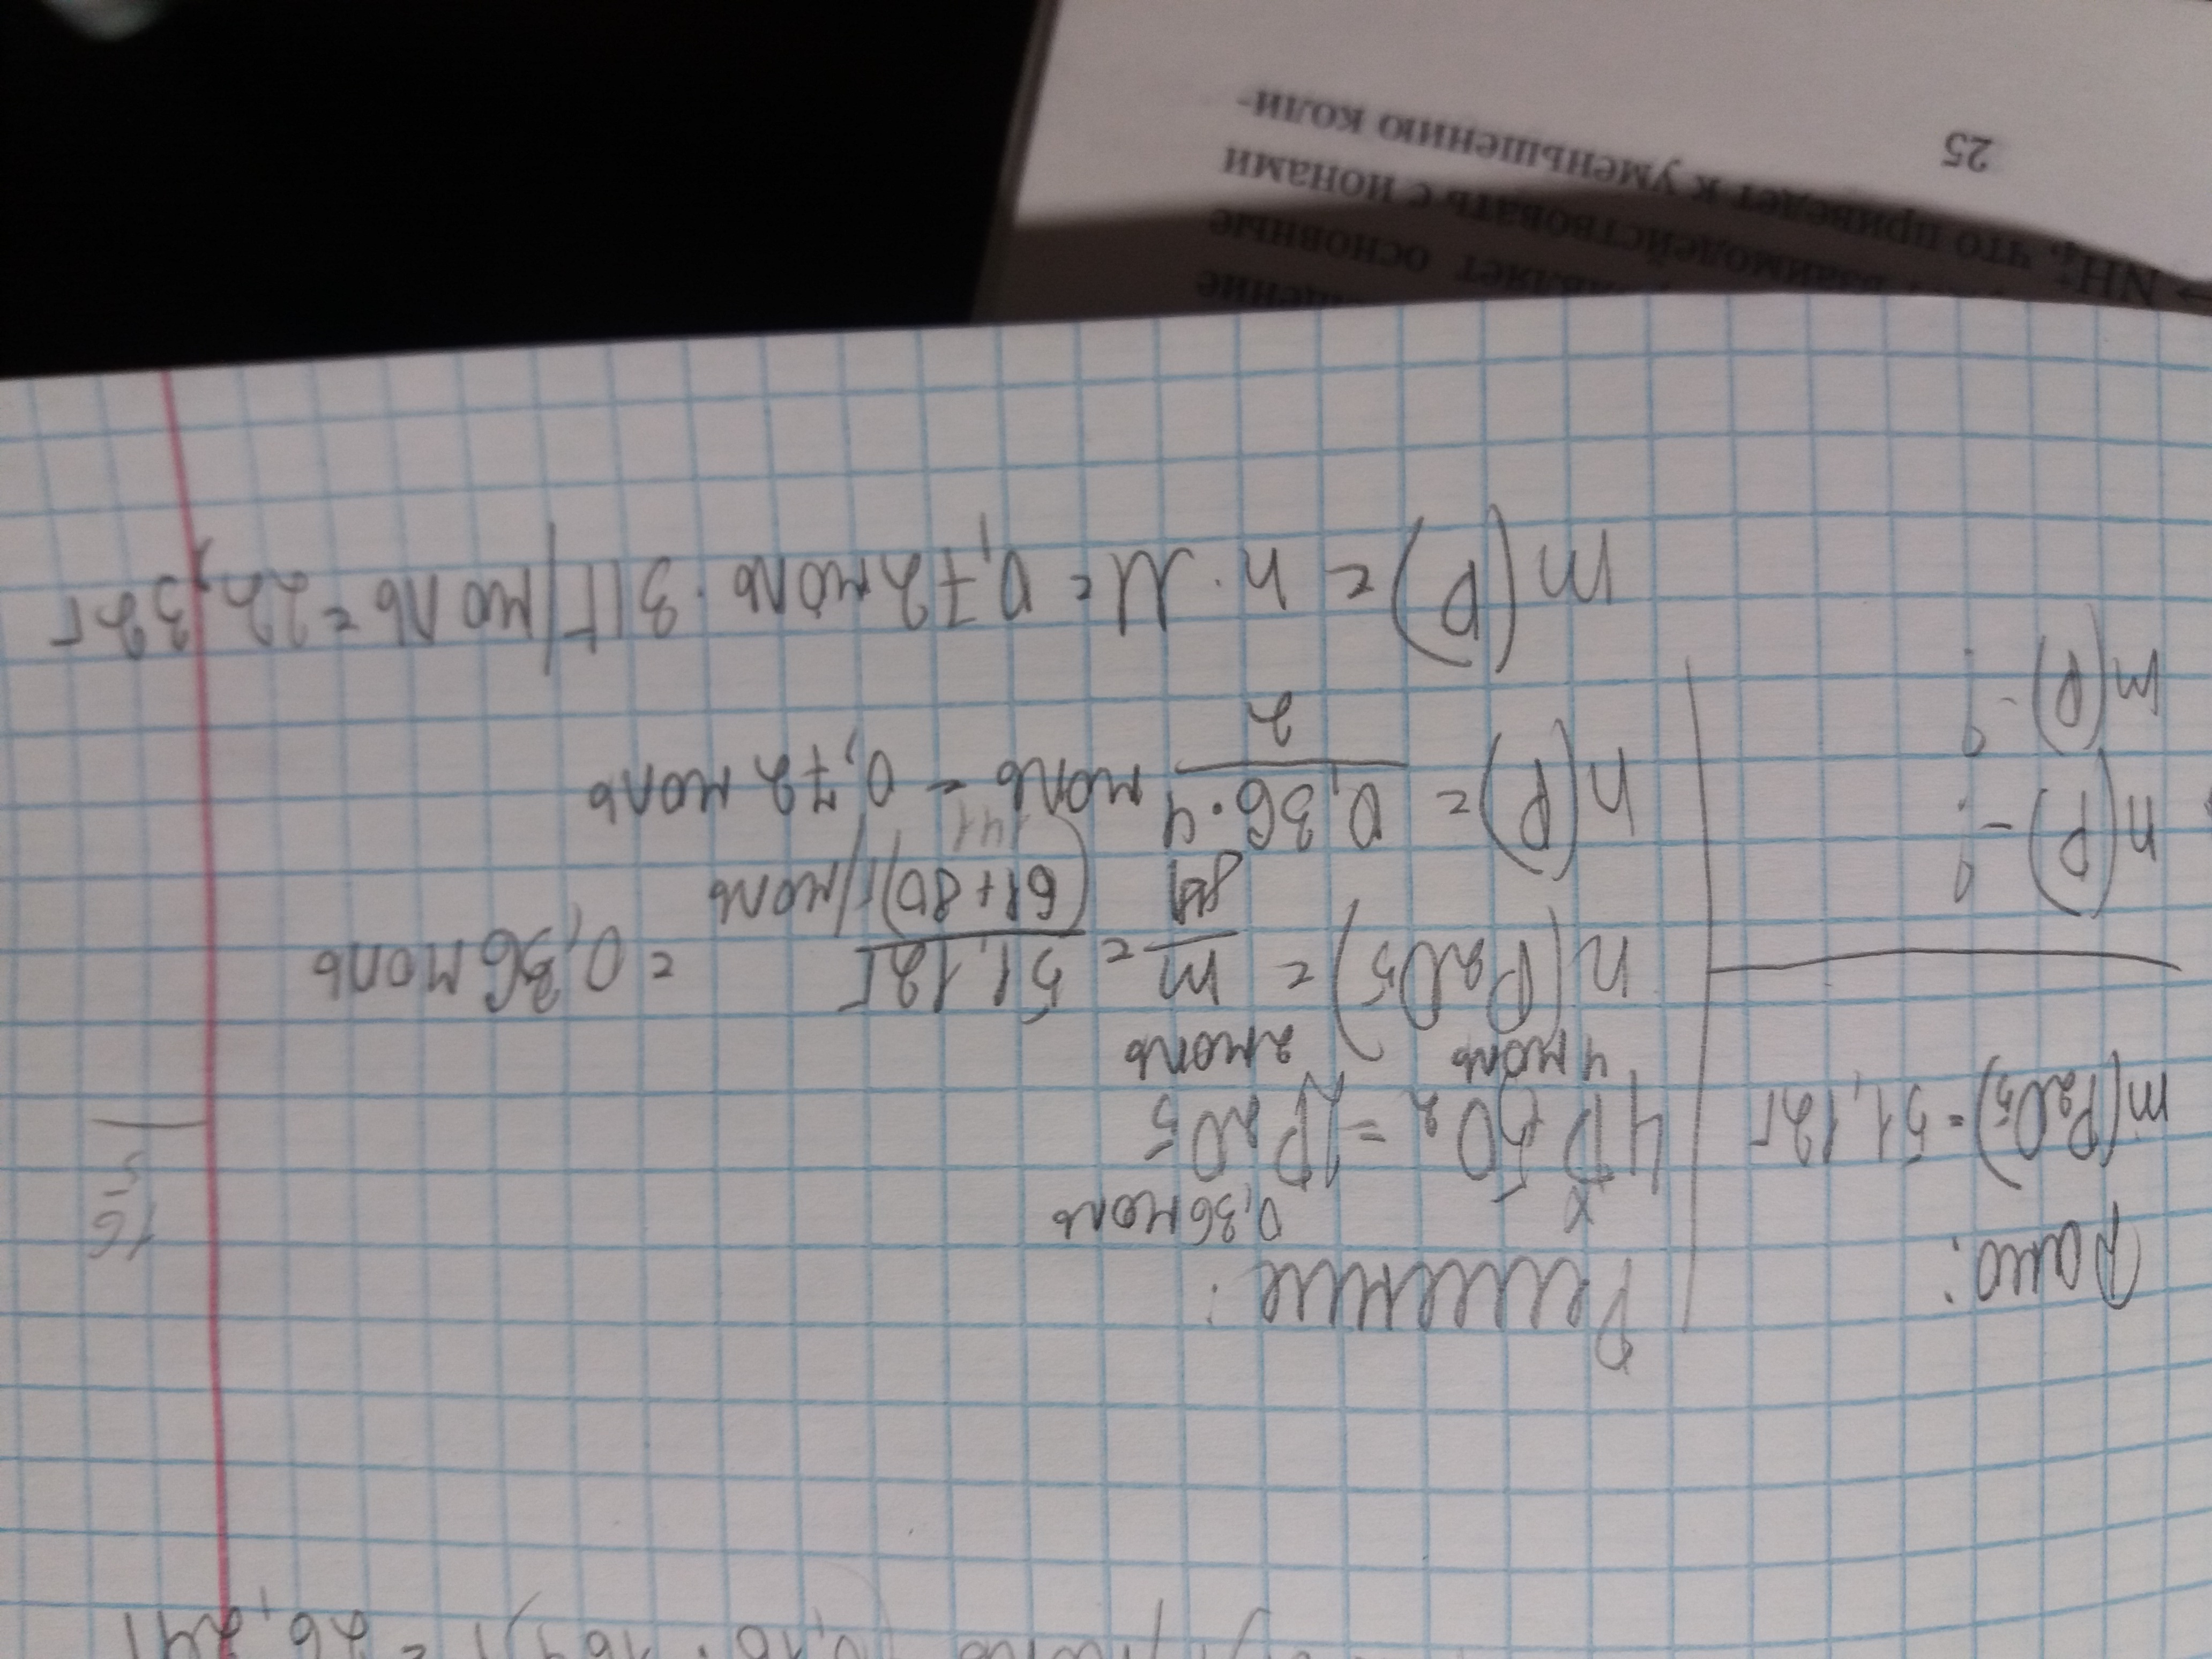 Дано:
m(P2O5)=51,12г
n(P)-?
m(P)-?
Решение:
x 0,36моль
4P 5O2 = 2P2O5
4 моль 2моль
n(P2O5) = m = 51,12г = 0,36моль
(61+80)г/моль
141
n(P) = 0,36·4 моль = 0,72моль
2
m(P) = n · M = 0,72моль · 31г/моль = 22,32г
16
5
→ NH4+, что приведет к уменьшению коли-
взаимодействовать с ионами
основные
25